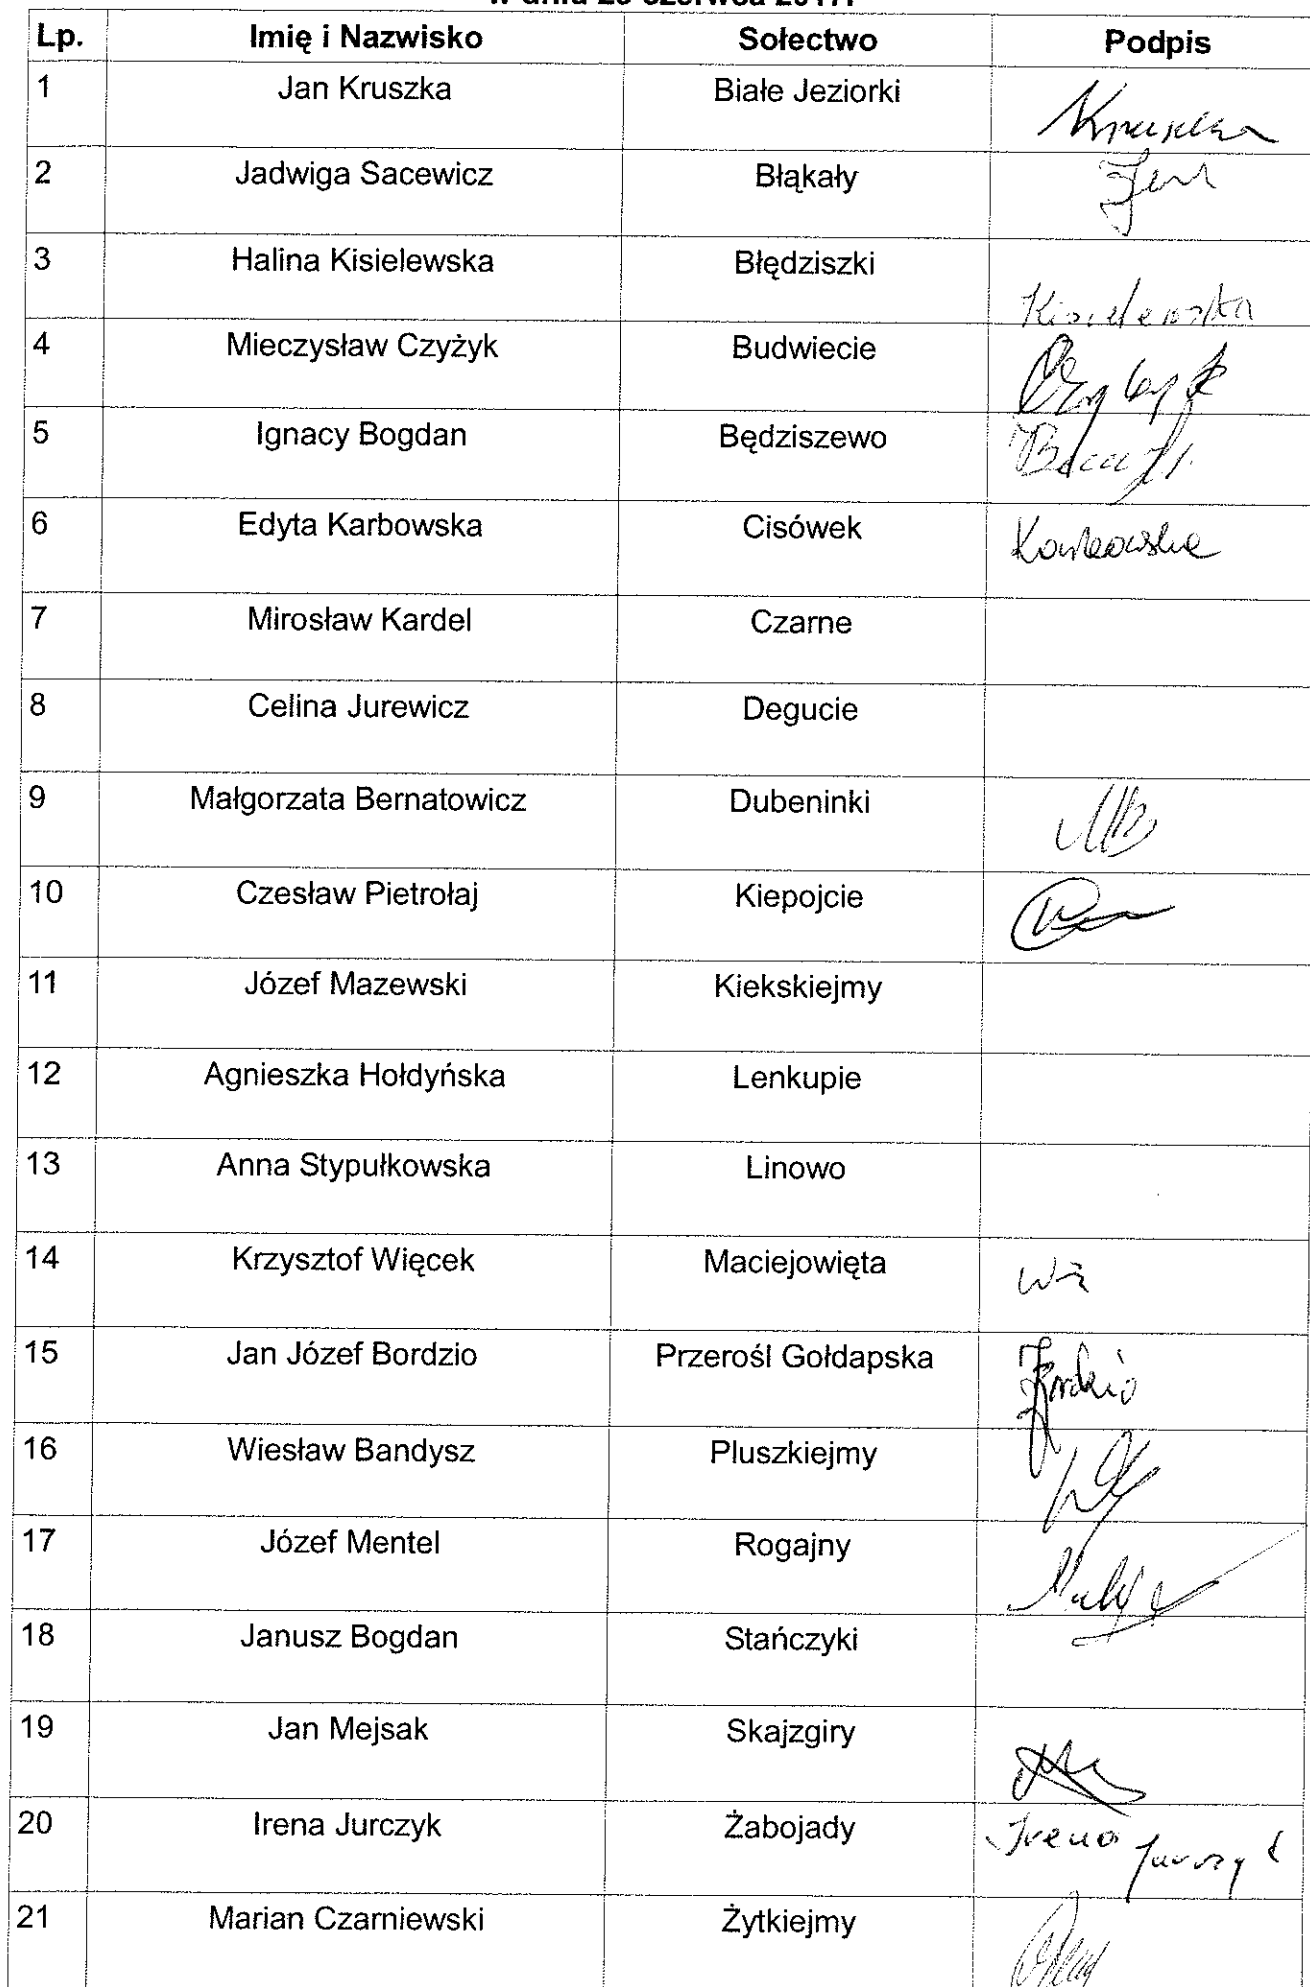 Lp. Imię i Nazwisko Sołectwo Podpis
1 Jan Kruszka Białe Jeziorki Kruszka
2 Jadwiga Sacewicz Błąkały
3 Halina Kisielewska Błędziszki Kisielewska
4 Mieczysław Czyżyk Budwiecie
5 Ignacy Bogdan Będziszewo
6 Edyta Karbowska Cisówek Karbowska
7 Mirosław Kardel Czarne
8 Celina Jurewicz Degucie
9 Małgorzata Bernatowicz Dubeninki MB
10 Czesław Pietrołaj Kiepojcie
11 Józef Mazewski Kiekskiejmy
12 Agnieszka Hołdyńska Lenkupie
13 Anna Stypułkowska Linowo
14 Krzysztof Więcek Maciejowięta
15 Jan Józef Bordzio Przerośl Gołdapska
16 Wiesław Bandysz Pluszkiejmy
17 Józef Mentel Rogajny
18 Janusz Bogdan Stańczyki
19 Jan Mejsak Skajzgiry
20 Irena Jurczyk Żabojady Irena Jurczyk
21 Marian Czarniewski Żytkiejmy